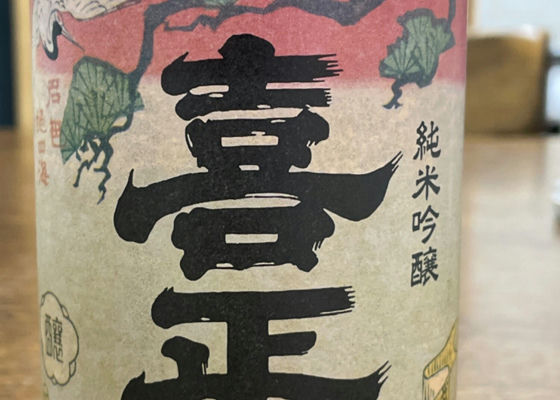 喜正
純米吟醸
醸